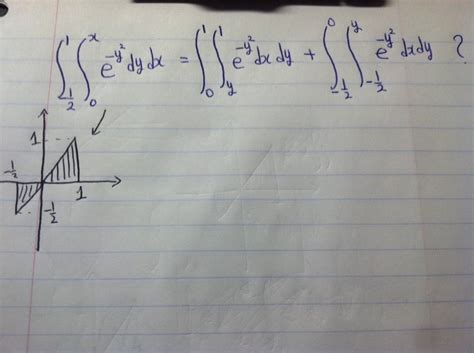 ∫_{-1/2}^{1} ∫_{0}^{x} e^{-y²} dy dx = ∫_{0}^{1} ∫_{y}^{1} e^{-y²} dx dy + ∫_{-1/2}^{0} ∫_{-1/2}^{y} e^{-y²} dx dy ?
1
-1/2
1
-1/2